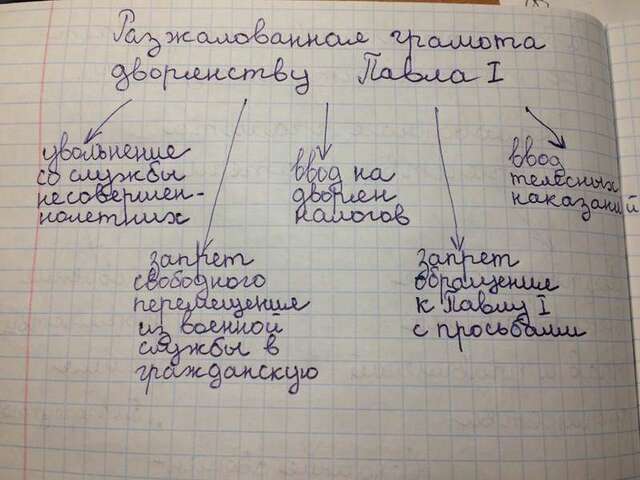 Разжалованная грамота
дворянству Павла I
увольнение
со службы
несовершен-
нолетних
запрет
свободного
перемещение
из военной
службы в
гражданскую
ввод на
дворян
налогов
запрет
обращение
к Павлу I
с просьбами
ввод
телесных
наказаний